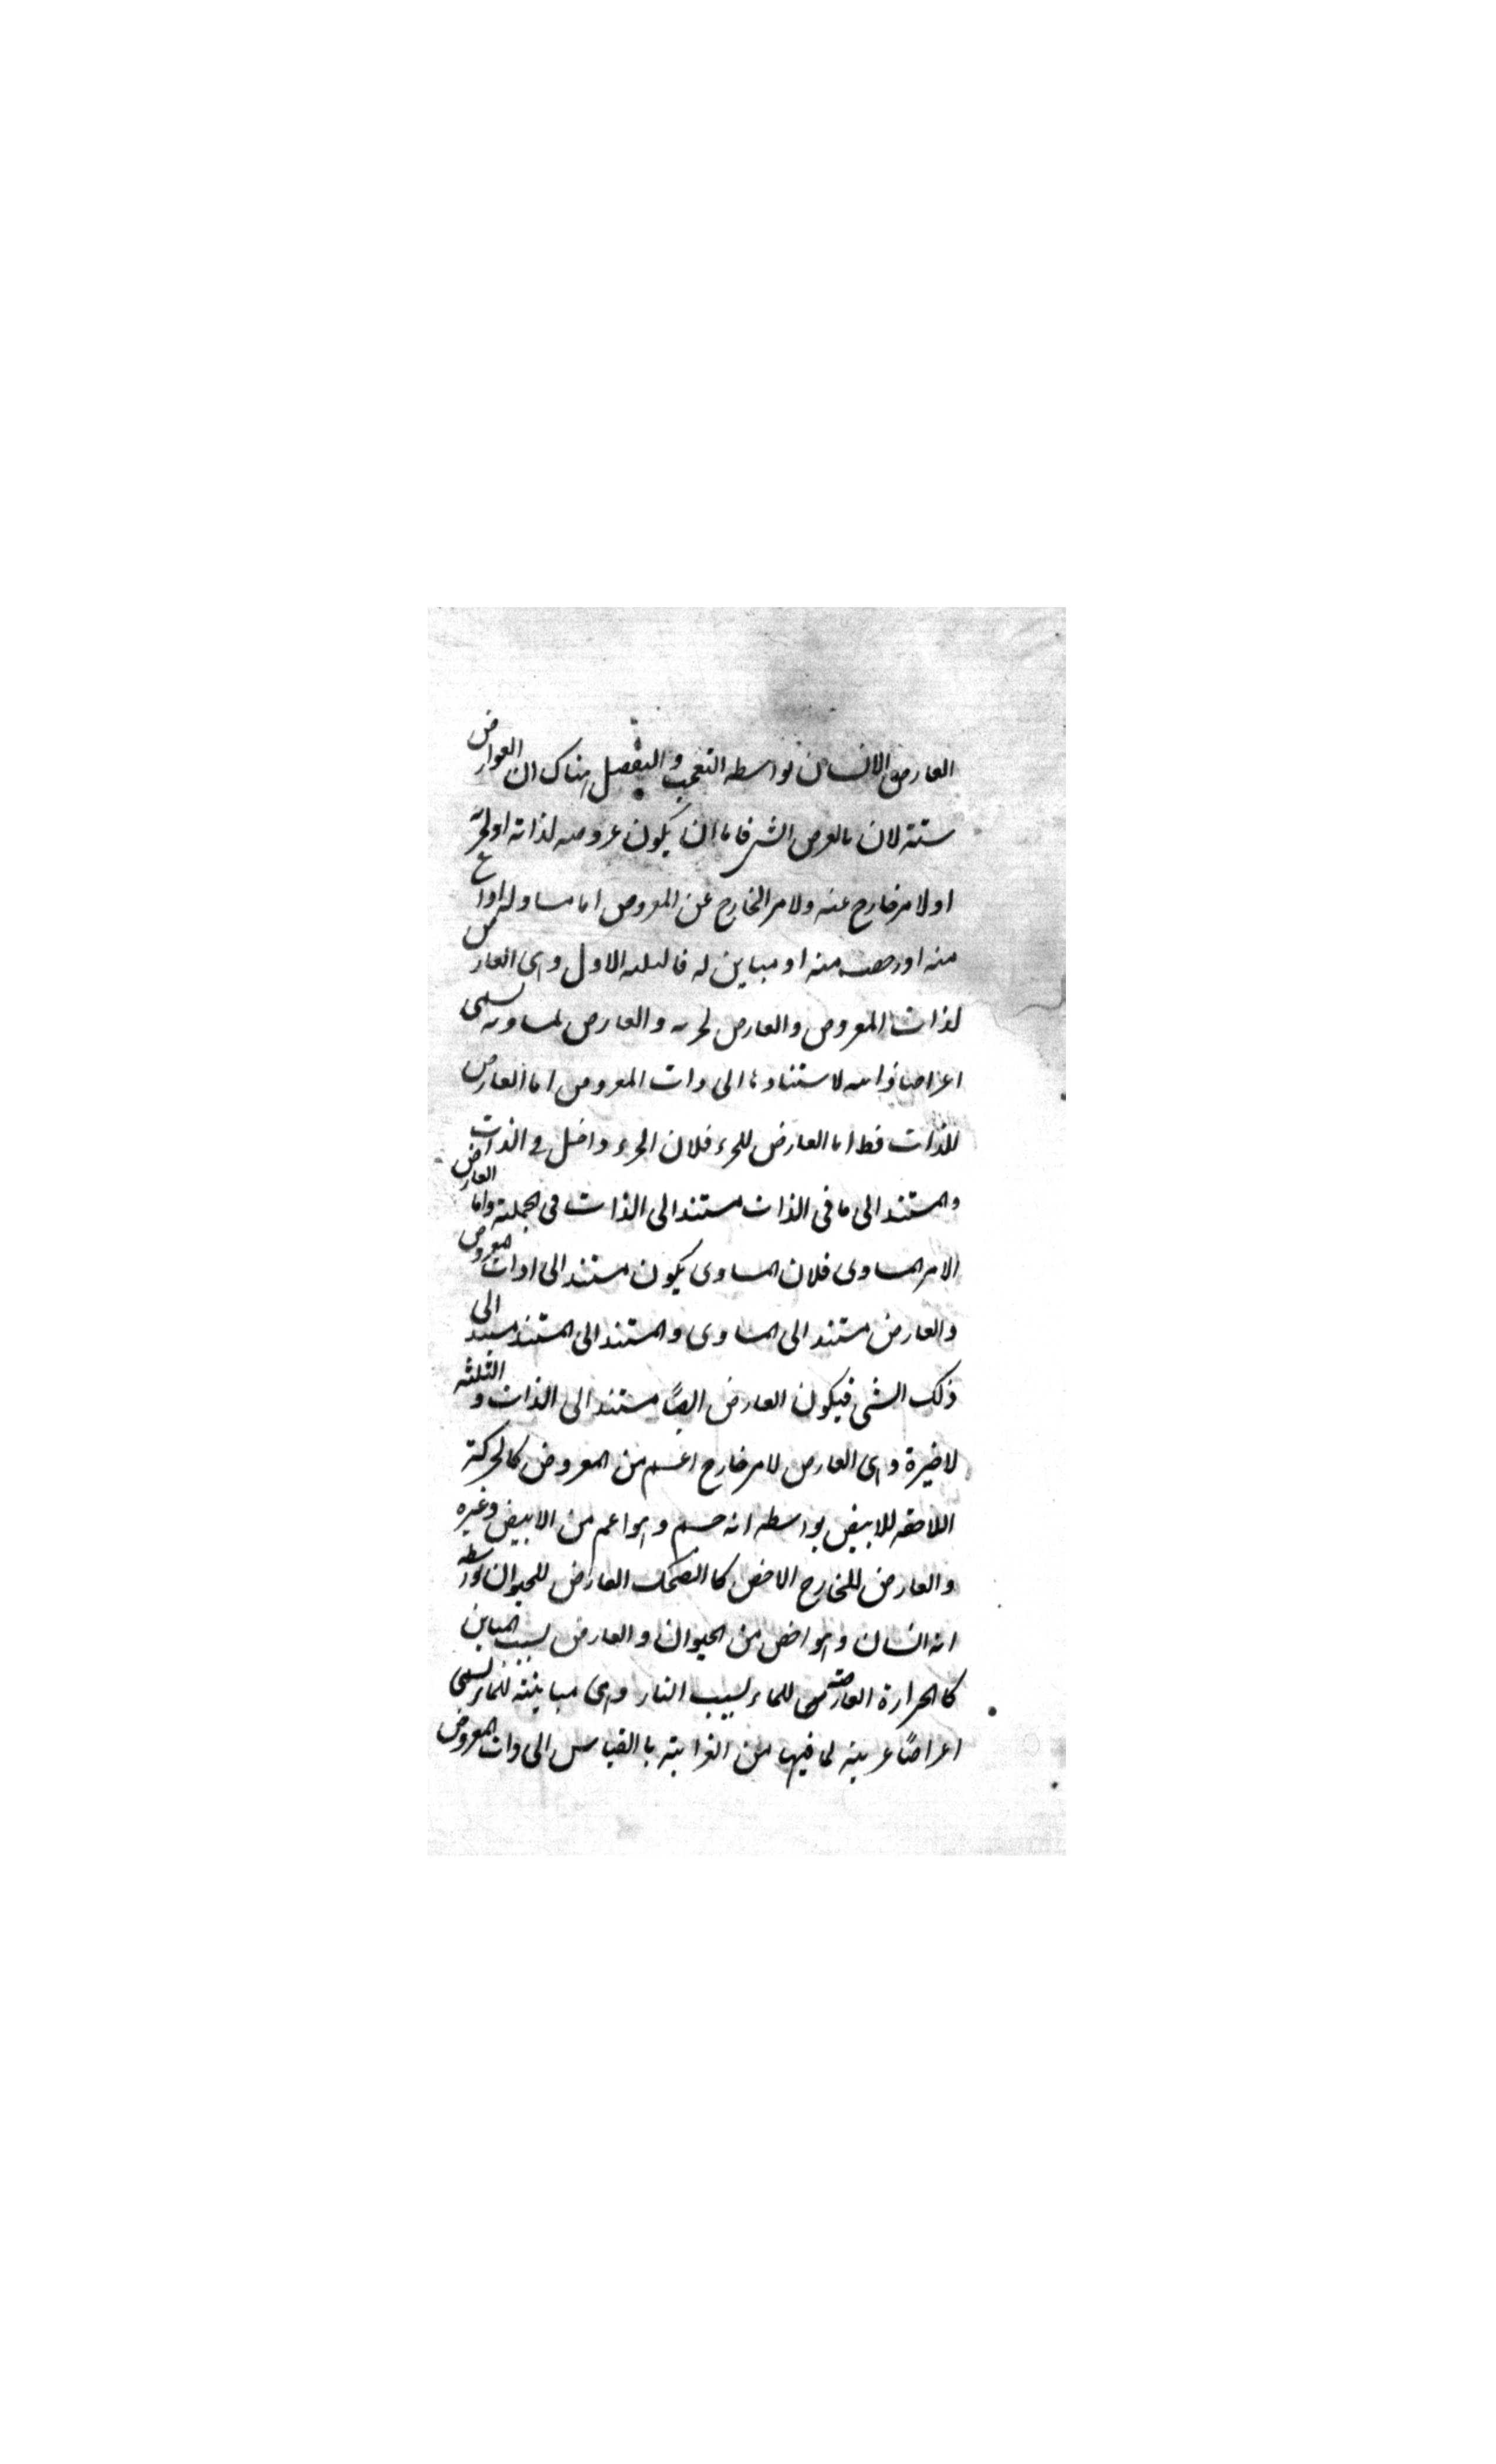 العارض الانسان بواسطه التعجب و التفصيل هناك ان العوارض
ستة لان ما يعرض الشى فاما ان يكون عروضه لذاته او لجزئه
او لامر خارج عنه ولامر الخارج عن المعروض اما مساو له او اعم
منه او اخص منه او مباين له فالثلثه الاول وهى العارض
لذات المعروض والعارض لجزئه والعارض لمساويه يسمى
اعراضا ذاتيه لاستنادها الى ذات المعروض اما العارض
للذات فط اما العارض للجزء فلان الجزء داخل فى الذات
والمستند الى ما فى الذات مستند الى الذات فى الجملة واما العارض
الامر المساوى فلان المساوى يكون مستند الى ذات المعروض
والعارض مستند الى المساوى والمستند الى المستند مستند الى
ذلك الشى فيكون العارض ايضًا مستند الى الذات و الثلثه
لاخيرة وهى العارض لامر خارج اعم من المعروض كالحركة
اللاحقه للابيض بواسطه انه جسم وهو اعم من الابيض وغيره
والعارض للخارج الاخص كا الضحك العارض للحيوان بواسطه
انه انسان وهو اخص من الحيوان والعارض بسبب المباين
كا الحرارة العارضة للماء بسبب النار وهى مباينته للماء يسمى
اعراضًا غريبة لما فيها من الغرابة با القياس الى ذات المعروض